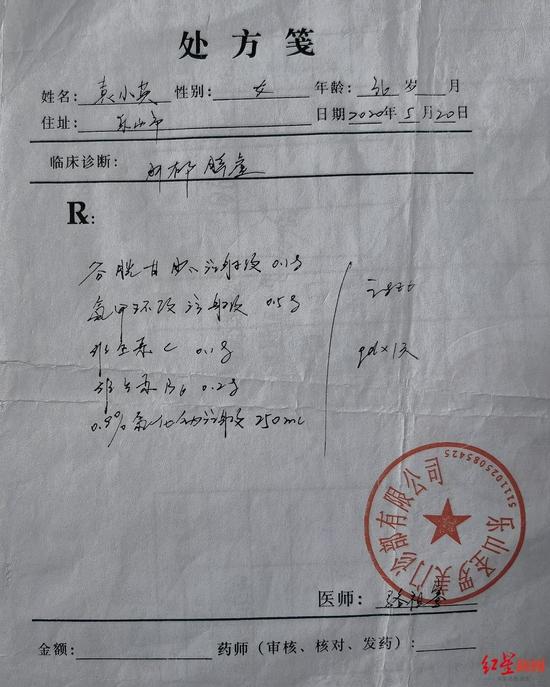 处方笺
姓名：袁小英 性别：女 年龄：36岁 月
住址：乐山市 日期2020年5月20日
临床诊断：肝郁脾虚
R:
谷胱甘肽注射液 0.1g
氨甲环酸注射液 0.5g
维生素C 0.1g
维生素B6 0.2g
0.9%氯化钠注射液 250ml
qd×1天
乐山圣罗美门诊部有限公司
5111025085425
医师：
金额： 药师（审核、核对、发药）：
红星新闻